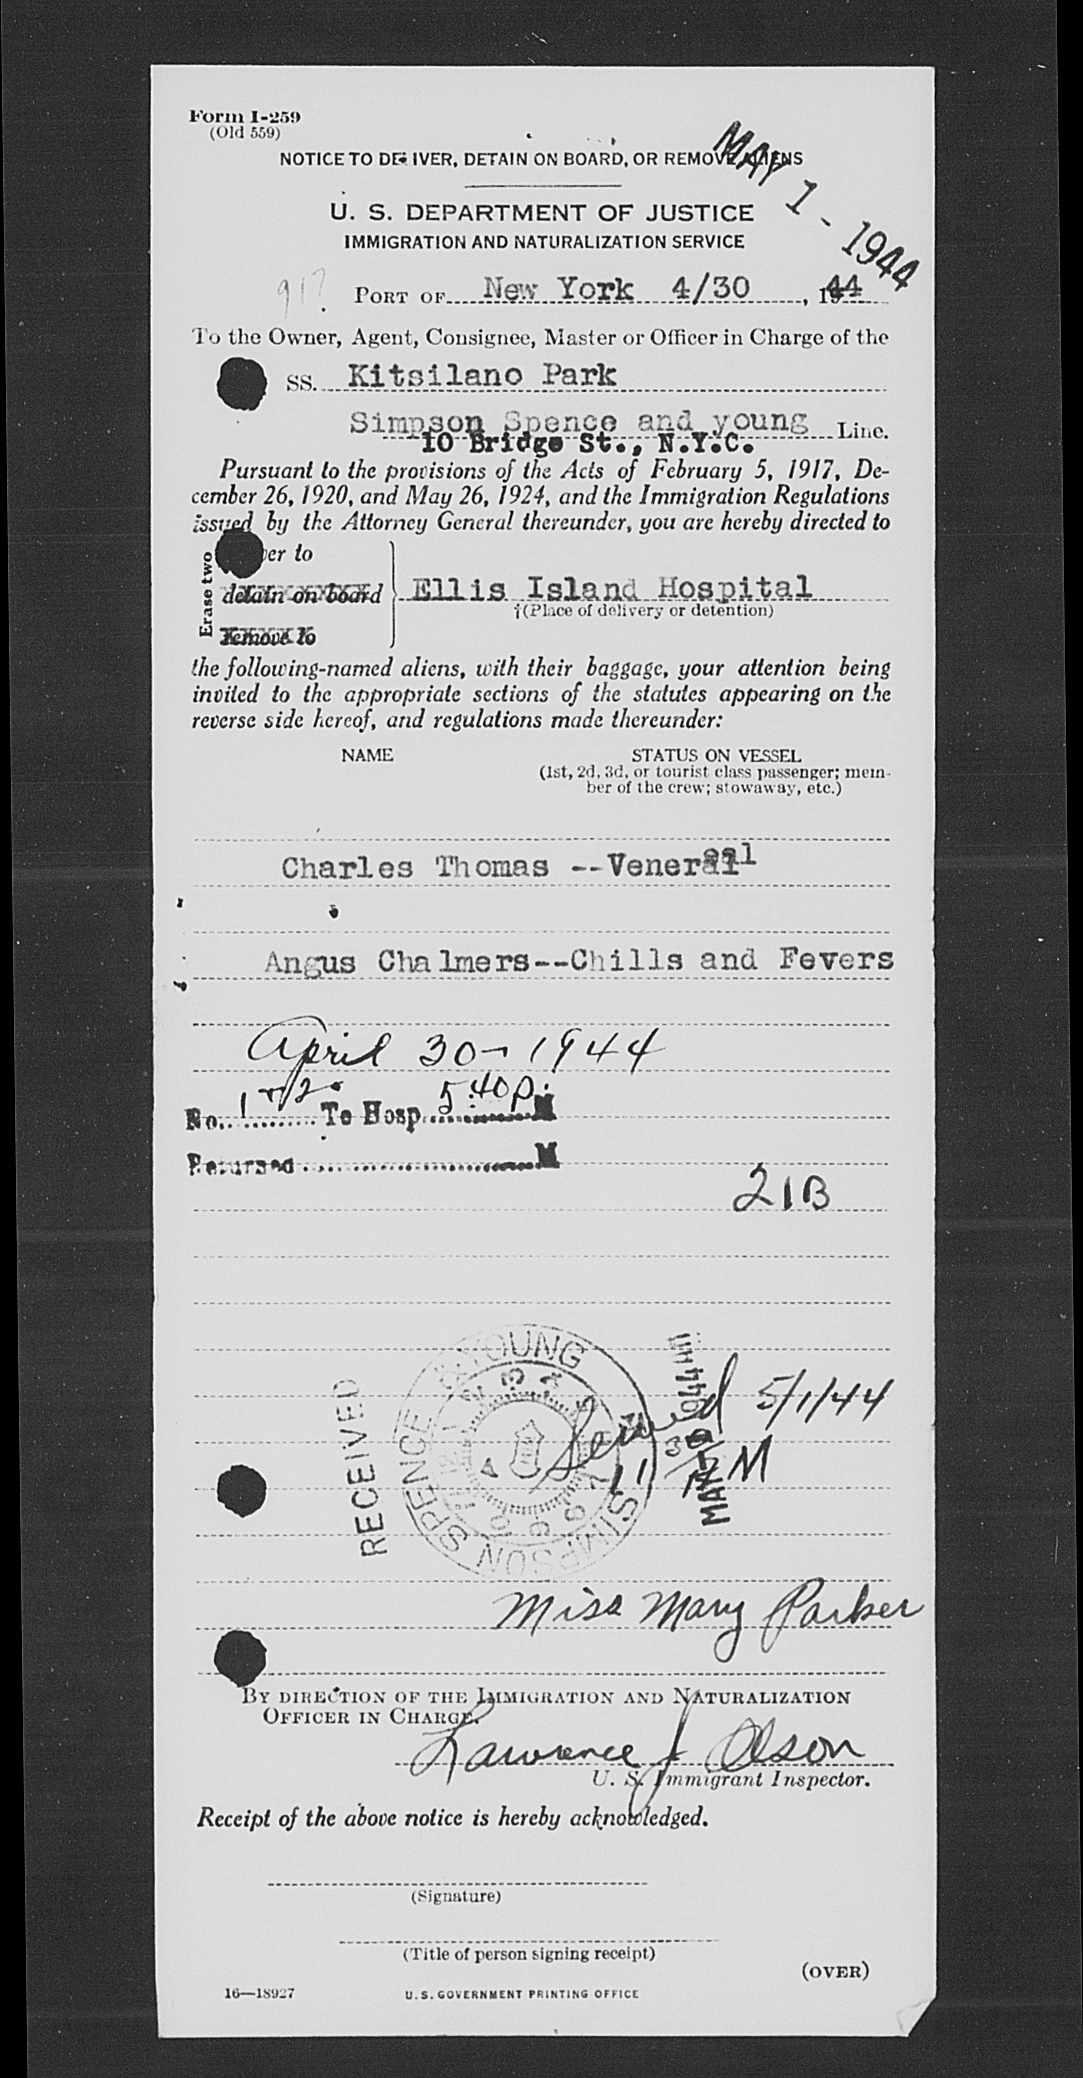 Form I-259
(Old 559)
MAY 1 - 1944
NOTICE TO DELIVER, DETAIN ON BOARD, OR REMOVE ALIENS
U. S. DEPARTMENT OF JUSTICE
IMMIGRATION AND NATURALIZATION SERVICE
PORT OF New York 4/30, 1944
To the Owner, Agent, Consignee, Master or Officer in Charge of the
SS. Kitsilano Park
Simpson Spence and young Line.
10 Bridge St., N.Y.C.
Pursuant to the provisions of the Acts of February 5, 1917, De-
cember 26, 1920, and May 26, 1924, and the Immigration Regulations
issued by the Attorney General thereunder, you are hereby directed to
Erase two
er to
detain on board Ellis Island Hospital
†(Place of delivery or detention)
remove to
the following-named aliens, with their baggage, your attention being
invited to the appropriate sections of the statutes appearing on the
reverse side hereof, and regulations made thereunder:
NAME STATUS ON VESSEL
(1st, 2d, 3d, or tourist class passenger; mem-
ber of the crew; stowaway, etc.)
Charles Thomas --Venereal
Angus Chalmers--Chills and Fevers
April 30-1944
No. To Hosp. 5:40 P.M
Returned M
21B
RECEIVED
SIMPSON SPENCE & YOUNG
1944
Served 5/1/44
11 AM
Miss Mary Parker
BY DIRECTION OF THE IMMIGRATION AND NATURALIZATION
OFFICER IN CHARGE.
Lawrence J Olson
U. S. Immigrant Inspector.
Receipt of the above notice is hereby acknowledged.
(Signature)
(Title of person signing receipt)
(OVER)
16—18927 U. S. GOVERNMENT PRINTING OFFICE